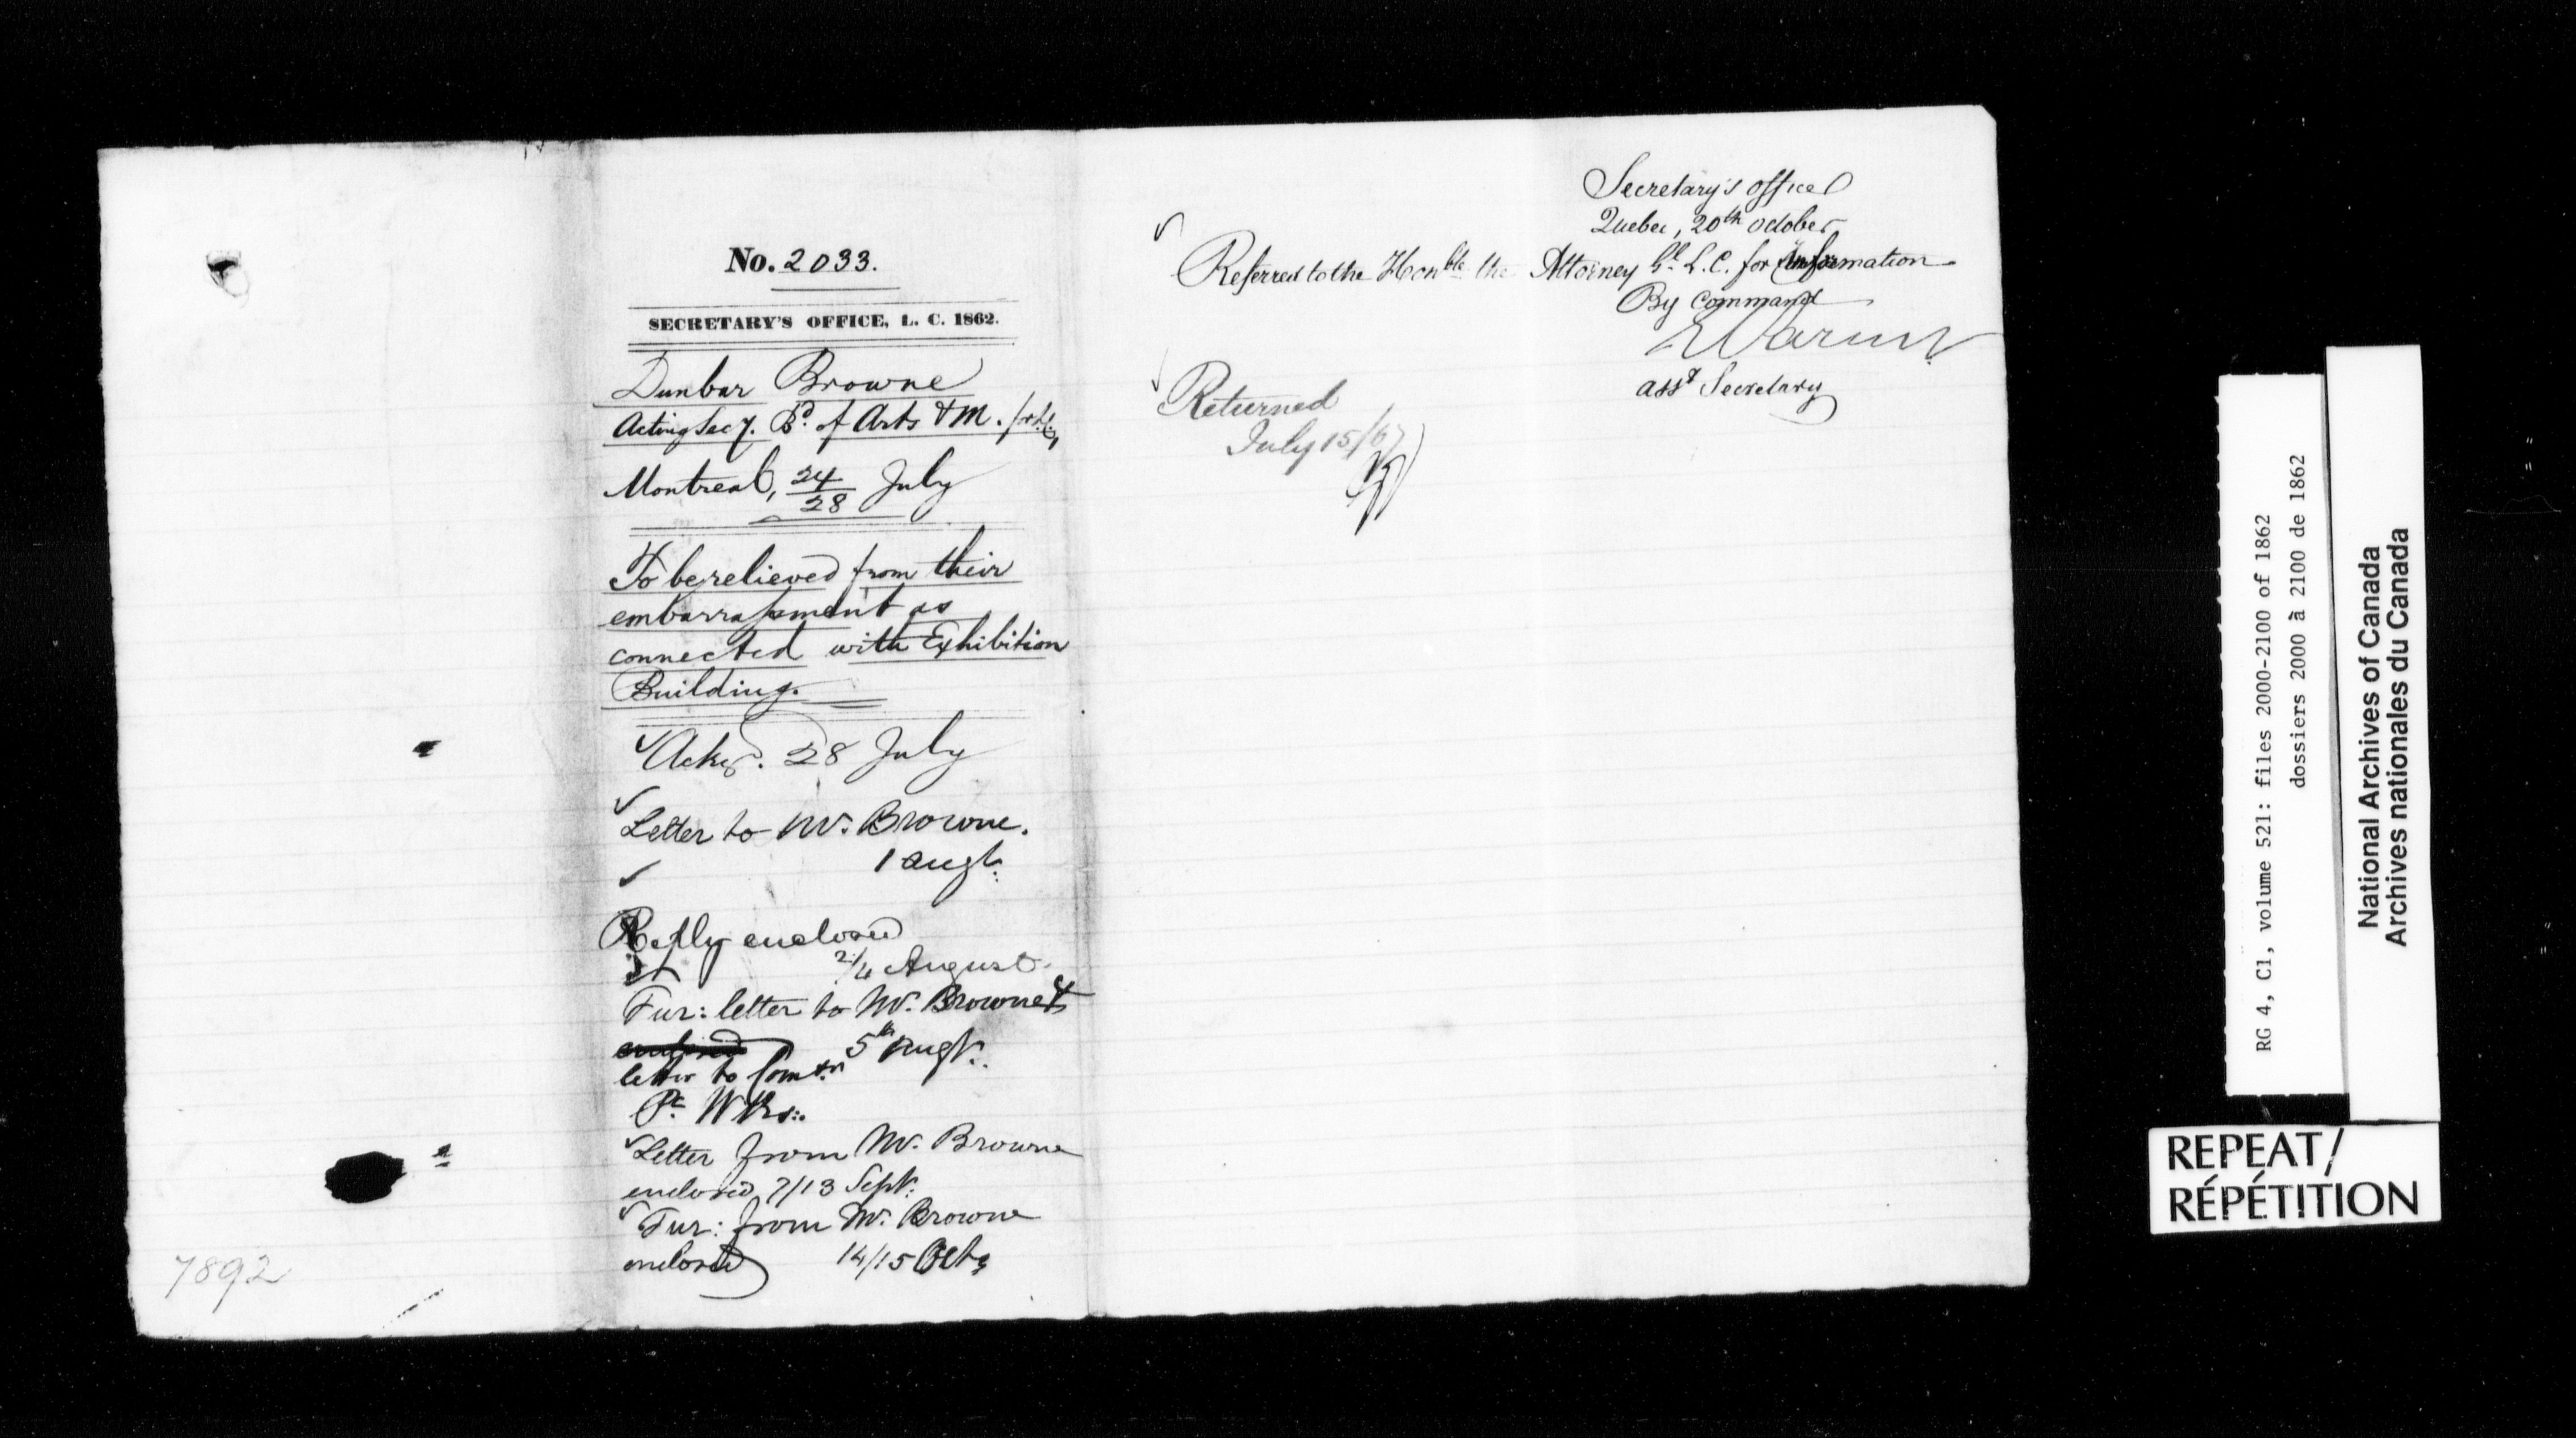 No. 2033.
SECRETARY'S OFFICE, L. C. 1862.
Dunbar Browne
Acting Secy. Bd. of Arts & M. for L.C.
Montreal, 24/28 July
To be relieved from their
embarrassment as
connected with Exhibition
Building.
Ackd. 28 July
Letter to Mr. Browne.
1 Augt.
Reply enclosed
2/4 August.
Fur: letter to Mr. Browne &
5th Augt.
letter to Comrs.
Pc. Wks:
Letter from Mr. Browne
enclosed 7/13 Sept:
Fur: from Mr. Browne
enclosed 14/15 Octr
7892
Secretary's office
Quebec, 20th October
Referred to the Honble. the Attorney Gl. L.C. for Information
By Command
Asst Secretary
Returned
July 15/67
RG 4, C1, volume 521: files 2000-2100 of 1862
dossiers 2000 à 2100 de 1862
National Archives of Canada
Archives nationales du Canada
REPEAT/
RÉPÉTITION